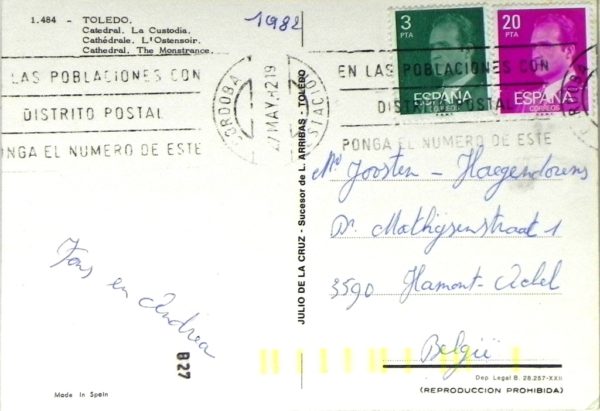 1.484 - TOLEDO.
Catedral. La Custodia.
Cathédrale. L'Ostensoir.
Cathedral. The Monstrance.
1982
3
PTA
ESPAÑA
CORREOS
20
PTA
ESPAÑA
CORREOS
LAS POBLACIONES CON
DISTRITO POSTAL
PONGA EL NUMERO DE ESTE
CORDOBA
27 MAY 82 19
ESTACION
EN LAS POBLACIONES CON
DISTRITO POSTAL
PONGA EL NUMERO DE ESTE
JULIO DE LA CRUZ - Sucesor de L. ARRIBAS - TOLEDO
Joosten - Haegendorens
Dr. Mathijsenstraat 1
3590 Hamont-Achel
België
Fons en Andrea
827
Made in Spain
Dep. Legal B. 28.257-XXII
(REPRODUCCION PROHIBIDA)